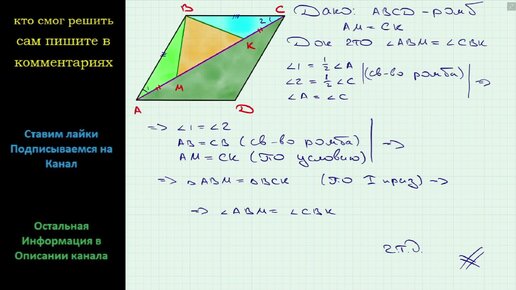 кто смог решить
сам пишите в
комментариях
Ставим лайки
Подписываемся на
Канал
Остальная
Информация в
Описании канала
B
C
K
M
A
D
1
2
Дано: ABCD - ромб
AM = CK
Док что ∠ABM = ∠CBK
∠1 = 1/2 ∠A
∠2 = 1/2 ∠C | (св-во ромба) | =>
∠A = ∠C
=> ∠1 = ∠2
AB = CB (св-во ромба) | =>
AM = CK (по условию)
=> △ABM = △BCK (по I приз) =>
=> ∠ABM = ∠CBK
ч.т.д.